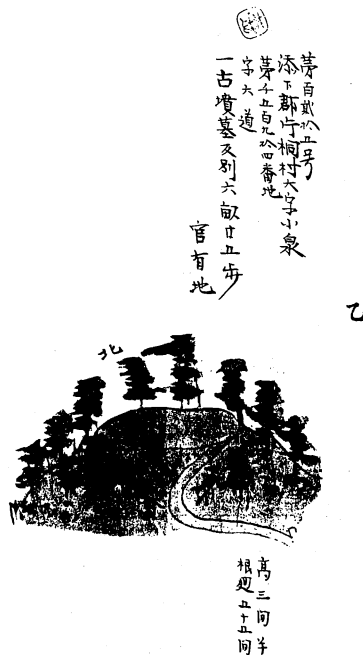 第百貮拾五号
添下郡片桐村大字小泉
第千五百九拾四番地
字大道
一古墳墓反別六畝廿五歩
官有地
乙
北
高三間半
根廻五十五間